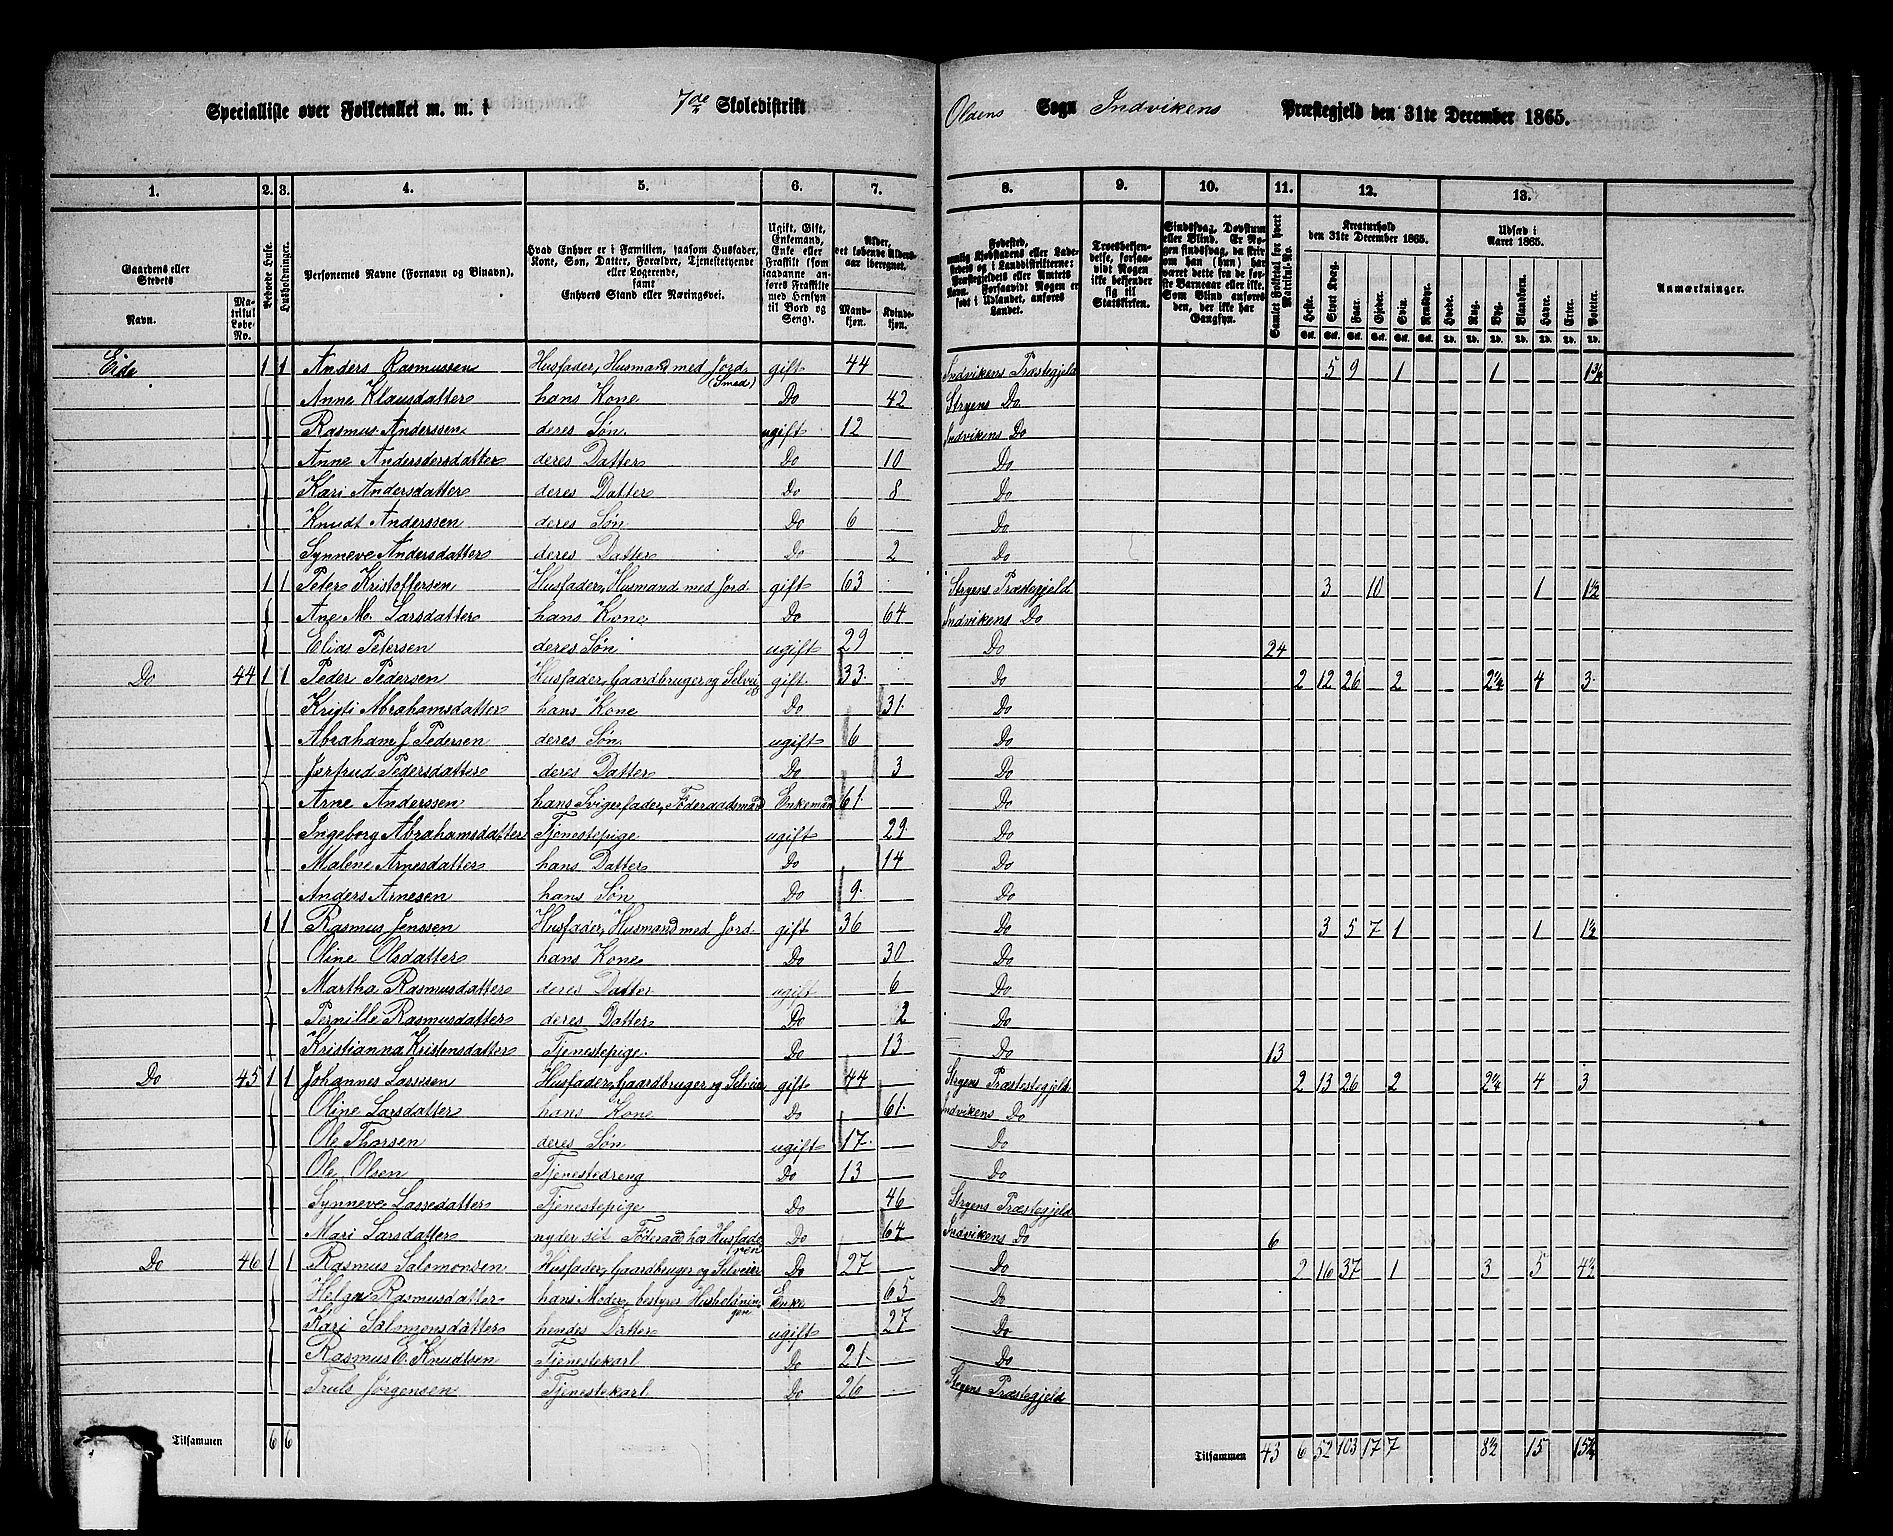 Specialliste over Folketallet m. m. i 7de Skoledistrikt Oldens Sogn Indvikens Præstegjeld den 31te December 1865.
1. 2. 3. 4. 5. 6. 7. 8. 9. 10. 11. 12. 13.
Gaardens eller Stedets Navn. Matrikul Løbe-No. Beboede Huse. Husholdninger. Personernes Navne (Fornavn og Binavn).
Hvad Enhver er i Familien, saasom Husfader, Kone, Søn, Datter, Forældre, Tjenestetyende eller Logerende, samt Enhvers Stand eller Næringsvei.
Ugift, Gift, Enkemand, Enke eller Fraskilt (som saadanne anføres Fraskilte med Hensyn til Bord og Seng).
Alder, det løbende Aldersaar iberegnet. Mandkjøn. Kvindekjøn.
Fødested, nemlig Kjøbstadens eller Ladestedets og i Landdistrikterne: Præstegjeldets eller Amtets Navn. Forsaavidt Nogen er født i Udlandet, anføres Landet.
Troesbekjendelse, forsaavidt Nogen ikke bekjender sig til Statskirken.
Sindssvag, Døvstum eller Blind. Er Nogen sindssvag, da skriv om han (hun) har været dette fra de første Barneaar eller ikke. Som Blind anføres den, der ikke har Gangsyn.
Samlet Folketal for hvert Matrikul-No.
Kreaturhold den 31te December 1865. Heste. Stort Kvæg. Faar. Gjeder. Svin. Rensdyr.
Udsæd i Aaret 1865. Hvede. Rug. Byg. Blandkorn. Havre. Erter. Poteter.
Anmærkninger.
Eide 1 1 Anders Rasmussen Husfader, Husmand med Jord (Smed) gift 44 Indvikens Præstegjeld 5 9 1 1 1¾
Anne Klausdatter hans Kone Do 42 Stryens Do
Rasmus Anderssen deres Søn ugift 12 Indvikens Do
Anne Andersdersdatter deres Datter Do 10 Do
Kari Andersdatter deres Datter Do 8 Do
Knudt Anderssen deres Søn Do 6 Do
Synneve Andersdatter deres Datter Do 2 Do
1 1 Peter Kristoffersen Husfader, Husmand med Jord gift 63 Stryens Præstegjeld 3 10 1 1½
Ane M. Larsdatter hans Kone Do 64 Indvikens Do
Elias Petersen deres Søn ugift 29 Do 24
Do 44 1 1 Peder Pedersen Husfader, Gaardbruger og Selveier gift 33 Do 2 12 26 2 2¼ 4 3
Kristi Abrahamsdatter hans Kone Do 31 Do
Abraham J Pedersen deres Søn ugift 6 Do
Jertrud Pedersdatter deres Datter Do 3 Do
Arne Anderssen hans Svigerfader, Føderaadsmand Enkemand 61 Do
Ingeborg Abrahamsdatter Tjenestepige ugift 29 Do
Malene Arnesdatter hans Datter Do 14 Do
Anders Arnesen hans Søn Do 9 Do
1 1 Rasmus Jenssen Husfader, Husmand med Jord gift 36 Do 3 5 7 1 1 1½
Oline Olsdatter hans Kone Do 30 Do
Martha Rasmusdatter deres Datter ugift 6 Do
Pernille Rasmusdatter deres Datter Do 2 Do
Kristianna Kristensdatter Tjenestepige Do 13 Do 13
Do 45 1 1 Johannes Lassesen Husfader, Gaardbruger og Selveier gift 44 Stryens Præstestegjeld 2 13 26 2 2¼ 4 3
Oline Larsdatter hans Kone Do 61 Indvikens Do
Ole Thorsen deres Søn ugift 17 Do
Ole Olsen Tjenestedreng Do 13 Do
Synneve Lassedatter Tjenestepige Do 46 Stryens Præstegjeld
Mari Larsdatter nyder sit Føderaad hos Husfaderen Do 64 Indvikens Do 6
Do 46 1 1 Rasmus Salomonsen Husfader, Gaardbruger og Selveier Do 27 Do 2 16 37 1 3 5 4½
Helga Rasmusdatter hans Moder, bestyrer Husholdningen Enke 65 Do
Kari Salomonsdatter hendes Datter ugift 27 Do
Rasmus E. Knudtsen Tjenestekarl Do 21 Do
Truls Jørgensen Tjenestekarl Do 26 Stryens Præstegjeld
Tilsammen 6 6 Tilsammen 43 6 52 103 17 7 8½ 15 15¼